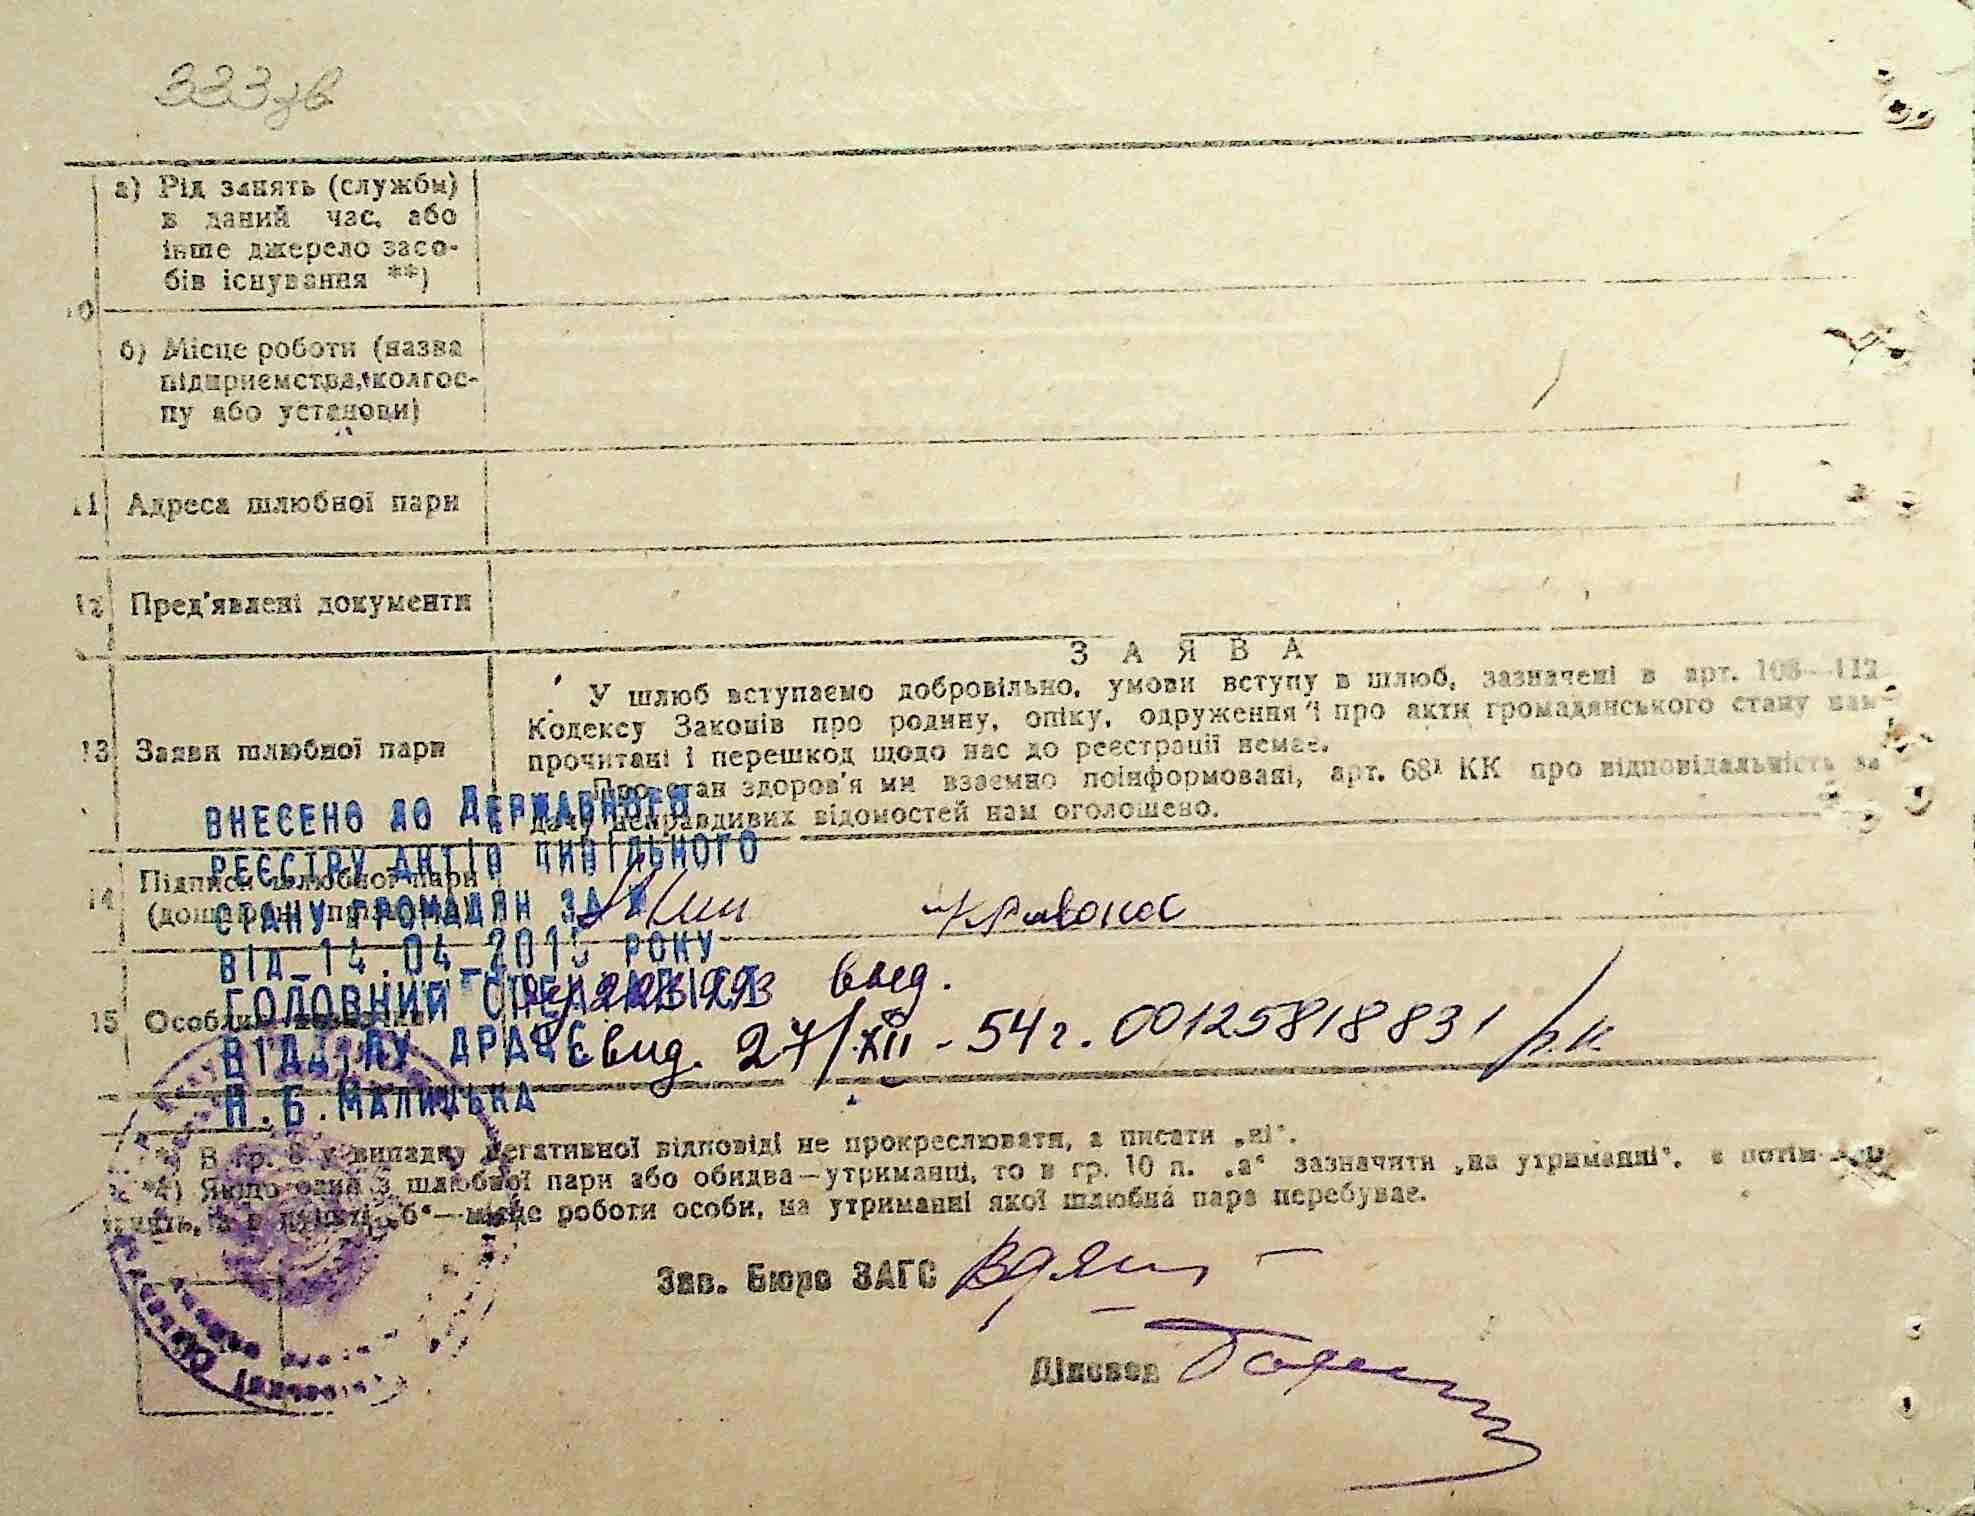 333 зв
а) Рід занять (службы)
в даний час, або
інше джерело засо-
бів існування **)
10
б) Місце роботи (назва
підприємства, колгос-
пу або установи)
11 Адреса шлюбної пари
12 Пред'явлені документи
ЗАЯВА
У шлюб вступаємо добровільно, умови вступу в шлюб, зазначені в арт. 108—112
Кодексу Законів про родину, опіку, одруження і про акти громадянського стану нам
прочитані і перешкод щодо нас до реєстрації немає.
13 Заяви шлюбної пари
Про стан здоров'я ми взаємно поінформовані, арт. 68¹ КК про відповідальність за
дачу неправдивих відомостей нам оголошено.
ВНЕСЕНО ДО ДЕРЖАВНОГО
РЕЄСТРУ АКТІВ ЦИВІЛЬНОГО
СТАНУ ГРОМАДЯН ЗА №
ВІД_14.04_2015 РОКУ
ГОЛОВНИЙ СПЕЦІАЛІСТ
ВІДДІЛУ ДРАЦС
Н.Б.МАЛИЦЬКА
14 Підписи шлюбної пари
15 Особливі
выд.
27/XII - 54 г. 00125818831 р.н.
*) В гр. 8 у випадку негативної відповіді не прокреслювати, а писати „ні“.
**) Якщо один з шлюбної пари або обидва—утриманці, то в гр. 10 п. „а“ зазначити „на утриманні“, а потім
в пункті „б“—місце роботи особи, на утриманні якої шлюбна пара перебуває.
Зав. Бюро ЗАГС
Діловод